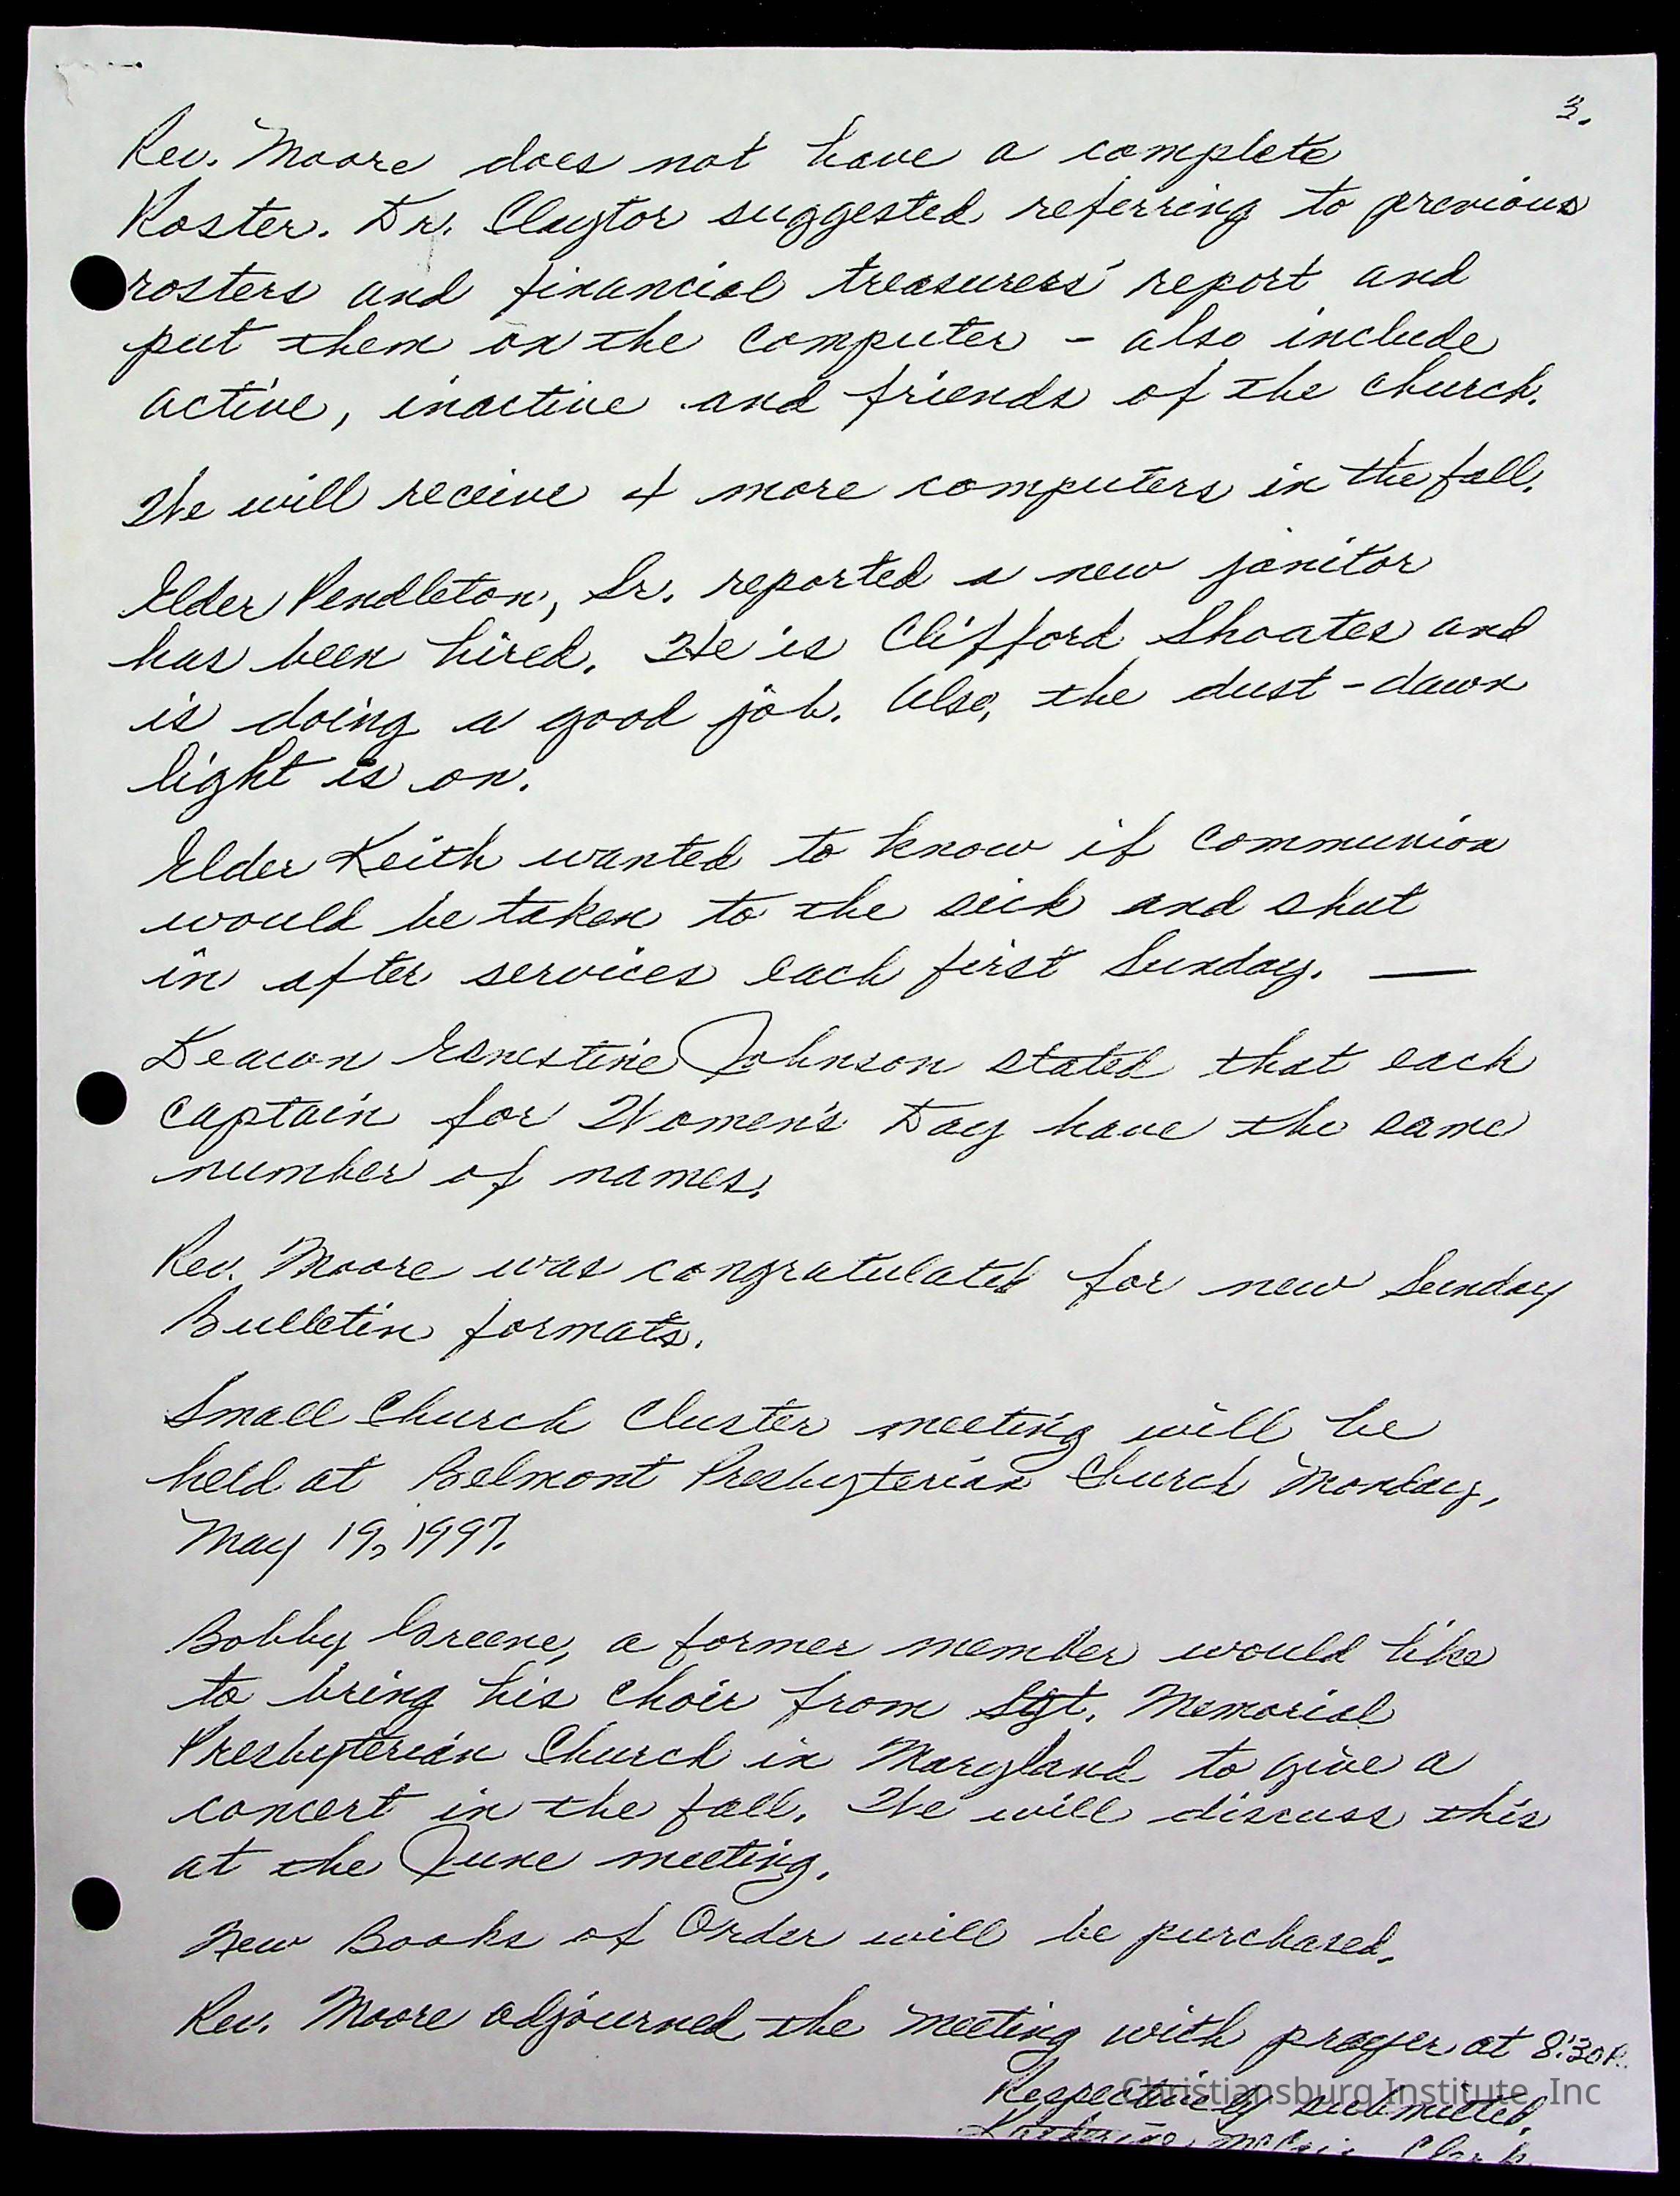 3.
Rev. Moore does not have a complete
Roster. Dr. Claytor suggested referring to previous
rosters and financial treasurers' report and
put them on the computer - also include
active, inactive and friends of the church.
We will receive 4 more computers in the fall.
Elder Pendleton, Sr. reported a new janitor
has been hired. He is Clifford Shoates and
is doing a good job. Also, the dust-dawn
light is on.
Elder Keith wanted to know if communion
would be taken to the sick and shut
in after services each first Sunday. —
Deacon Ernestine Johnson stated that each
captain for Women's Day have the same
number of names.
Rev. Moore was congratulated for new Sunday
Bulletin formats.
Small Church Cluster meeting will be
held at Belmont Presbyterian Church Monday,
May 19, 1997.
Bobby Greene, a former member would like
to bring his choir from Sgt. Memorial
Presbyterian Church in Maryland to give a
concert in the fall. We will discuss this
at the June meeting.
New Books of Order will be purchased.
Rev. Moore adjourned the meeting with prayer at 8:30 P.
Respectively submitted,
Christiansburg Institute, Inc